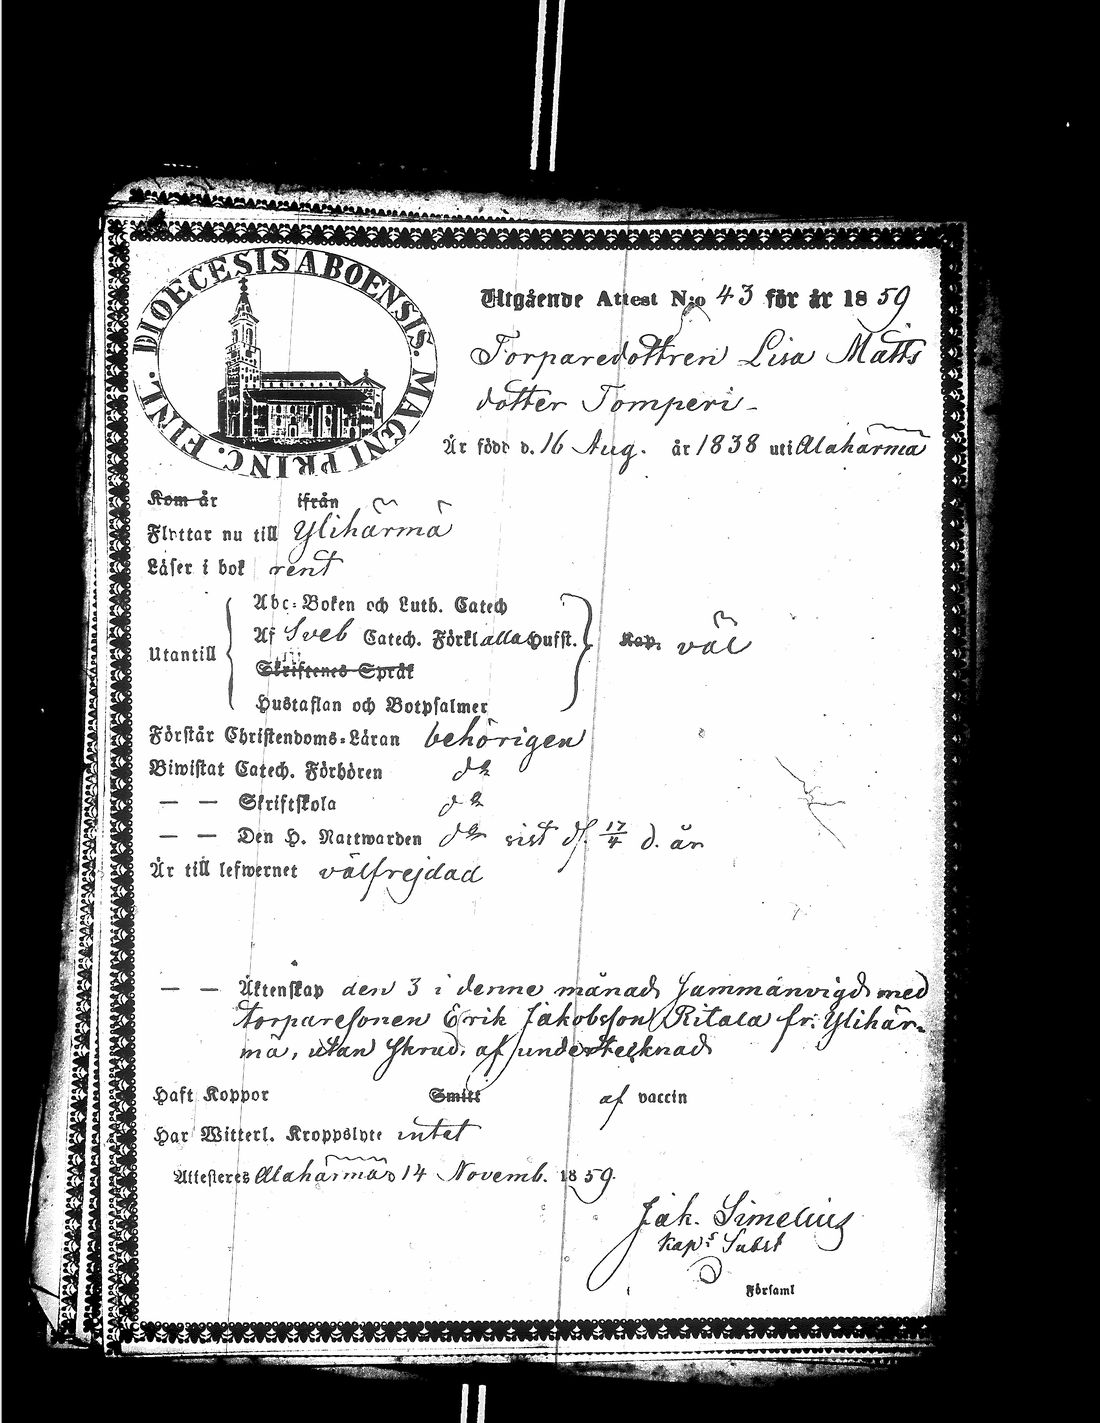 DIOECESIS ABOENSIS. MAGNI PRINC. FINL.
Utgående Attest N:o 43 för år 1859
Torparedottren Lisa Matts
dotter Tomperi -
Är född d. 16 Aug. år 1838 uti Alahärmä
Kom år ifrån
Flyttar nu till Ylihärmä
Läser i bok rent
Abc-Boken och Luth. Catech
Af Sveb Catech. Förkl alla Husst. Kap. väl
Utantill
Skriftenes Språk
Hustaflan och Botpsalmer
Förstår Christendoms-Läran behörigen
Biwistat Catech. Förhören do
— — Skriftskola do
— — Den H. Nattwarden do sist d. 17/4 d. år
Är till lefwernet välfrejdad
— — Äktenskap den 3 i denne månad sammanvigd med
torparesonen Erik Jakobsson Ritala fr. Ylihär-
mä, utan skrud, af undertecknad
Haft Koppor Smitt af vaccin
Har Witterl. Kroppslyte intet
Attesteres Alahärmä d 14 Novemb. 1859.
Jak. Simelius
Kaps Subst
Församl